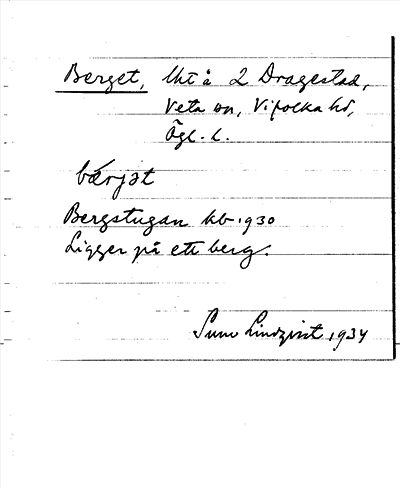 Berget, lht å 2 Dragestad,
Veta sn, Vifolka hd,
Ögl. l.
bærjət
Bergstugan kb 1930
Ligger på ett berg.
Sune Lindqvist 1934